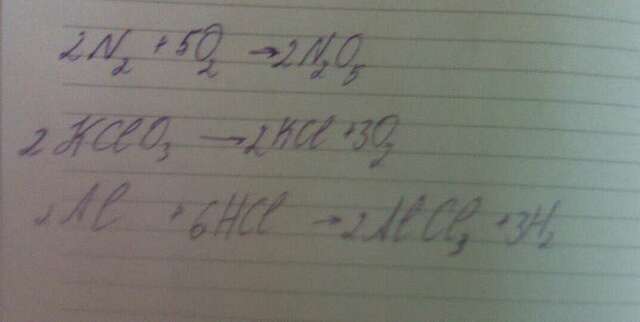 2N₂ + 5O₂ → 2N₂O₅
2KClO₃ → 2KCl + 3O₂
2Al + 6HCl → 2AlCl₃ + 3H₂